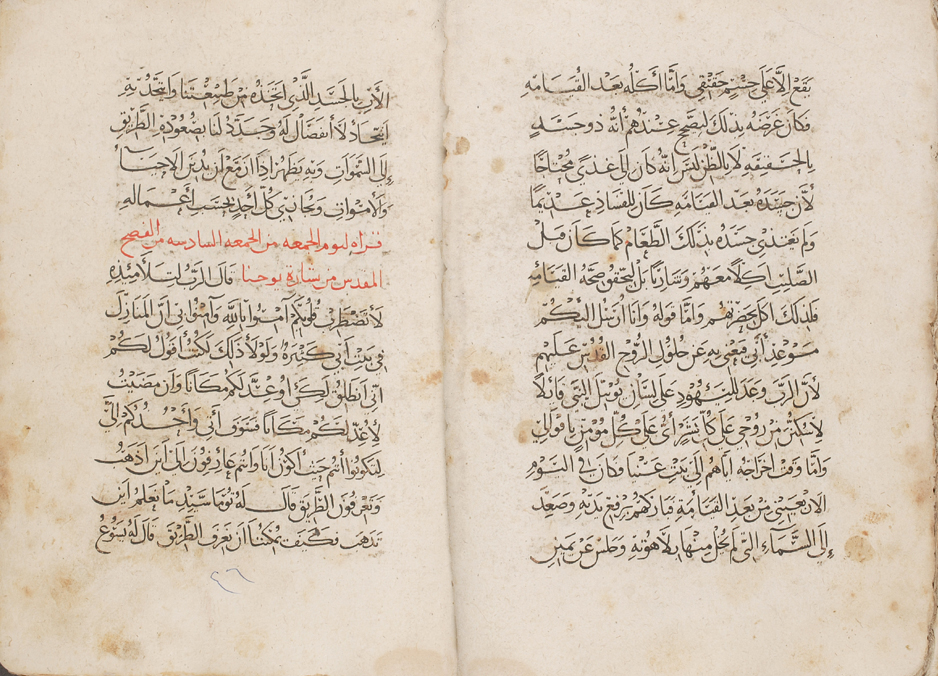 يقع الا على جسم حقيقي وامّا أكله بعد القيامه
فكان غرضه بذلك ليصحح عندهم أنه ذو جسد
بالحقيقه لا بالظن ليس انه كان الي غذي محتاجًا
لأن جسده بعد القيامه كان للفساد عديمًا
ولم يغتذي جسده بذلك الطعام كما كان قبل
الصليب كلا معهم وشاربًا بل لتحقق صحّة القيامه
فلذلك اكل بحضرتهم وامّا قوله وانا أرسل اليكم
موعد أبي فيعني به عن حلول الروح القدس عليهم
لأن الرب وعد لليهود على لسان يوئيل النبي قائلًا
لاسكبن من روحي على كل بشر أي على كل مؤمن يا قوالي
وامّا وقت اخراجه اياهم الي بيت عنيا وكان في اليوم
الاربعين من بعد القيامة فباركهم برفع يديه وصعد
إلى السماء التي لم يخل منها بلاهوته وجلس عن يمين
الآب بالجسد الذي اتخذه من طبيعتنا واتحد به
اتحاد لا انفصال له وجدد لنا بصعوده الطريق
إلى السموات وبه يظهر اذا ازمع ان يدين الاحياء
والاموات ويجازي كل احد بحسب أعماله
قراه ليوم الجمعه من الجمعه السادسه من الفصح
المقدس من بشارة يوحنا قال الرب لتلاميذه
لا تضطرب قلوبكم آمنوا بالله وآمنوا بي ان المنازل
في بيت أبي كثيره ولولا ذلك لكنت أقول لكم
اني انطلق لكي اوعد لكم مكانًا وان مضيت
لاعد لكم مكانًا فسوف أتي وأخذكم اليّ
لتكونوا أنتم حيث اكون انا وانتم عارفون الي اين اذهب
وتعرفون الطريق قال له توما سيد ما نعلم اين
تذهب فكيف يمكننا ان نعرف الطريق قال له يسوع
٤٦